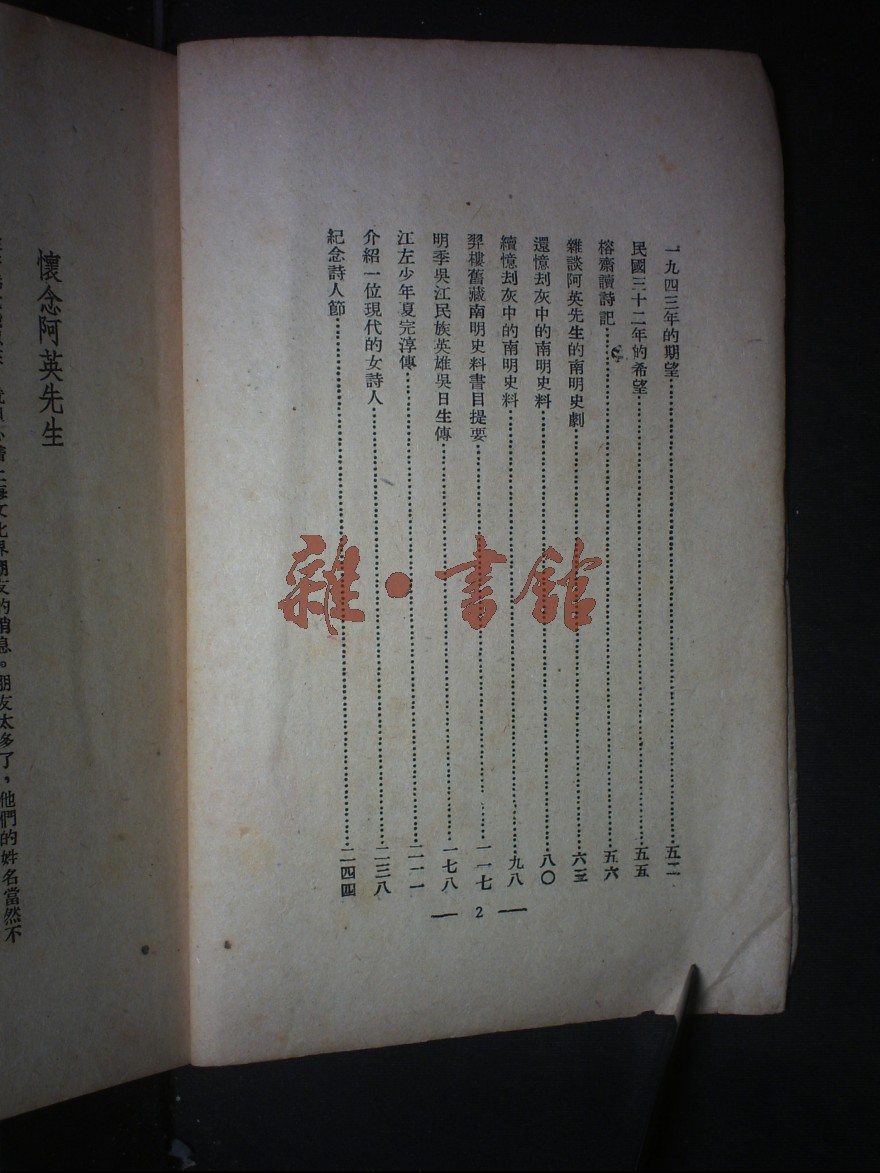 一九四三年的期望……五二
民國三十二年的希望……五五
榕齋讀詩記……五六
雜談阿英先生的南明史劇……六三
還憶刦灰中的南明史料……八〇
續憶刦灰中的南明史料……九八
羿樓舊藏南明史料書目提要……一一七
明季吳江民族英雄吳日生傳……一七八
江左少年夏完淳傳……二一一
介紹一位現代的女詩人……二三八
紀念詩人節……二四四
— 2 —
雜·書館
懷念阿英先生
上海文化界朋友的消息。朋友太多了，他們的姓名當然不